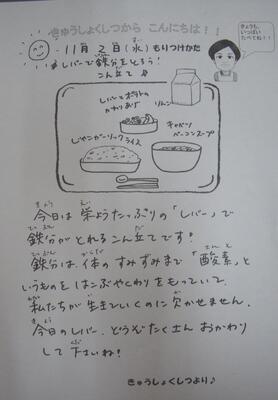 きゅうしょくしつから こんにちは!!
きょうも
いっぱい
たべてね!!
11月2日(水)もりつけかた
レバーで鉄分をとろう!
こん立て
レバーとポテトの
かわりあげ
りんご
キャベツ
ベーコンスープ
じゃこガーリックライス
今日は栄ようたっぷりの「レバー」で
鉄分がとれるこん立てです!
鉄分は、体のすみずみまで「酸素」と
いうものをはこぶやくわりをもっていて、
私たちが生きていくのに欠かせません。
今日のレバー、どうぞたくさんおかわり
して下さいね!
きゅうしょくしつより♪